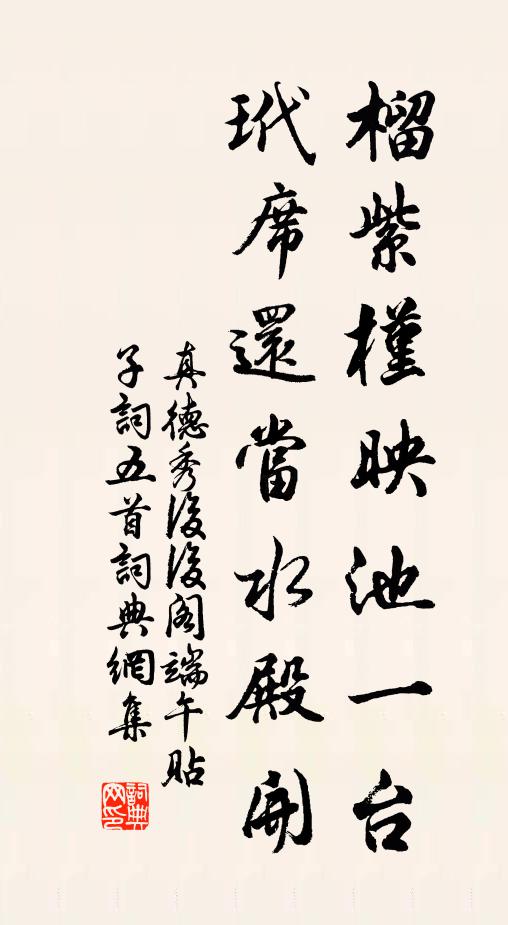 榴紫槿映池一台
玳席還當水殿開
真德秀後後閣端午貼
子詞五首詞典網集
詞典网印